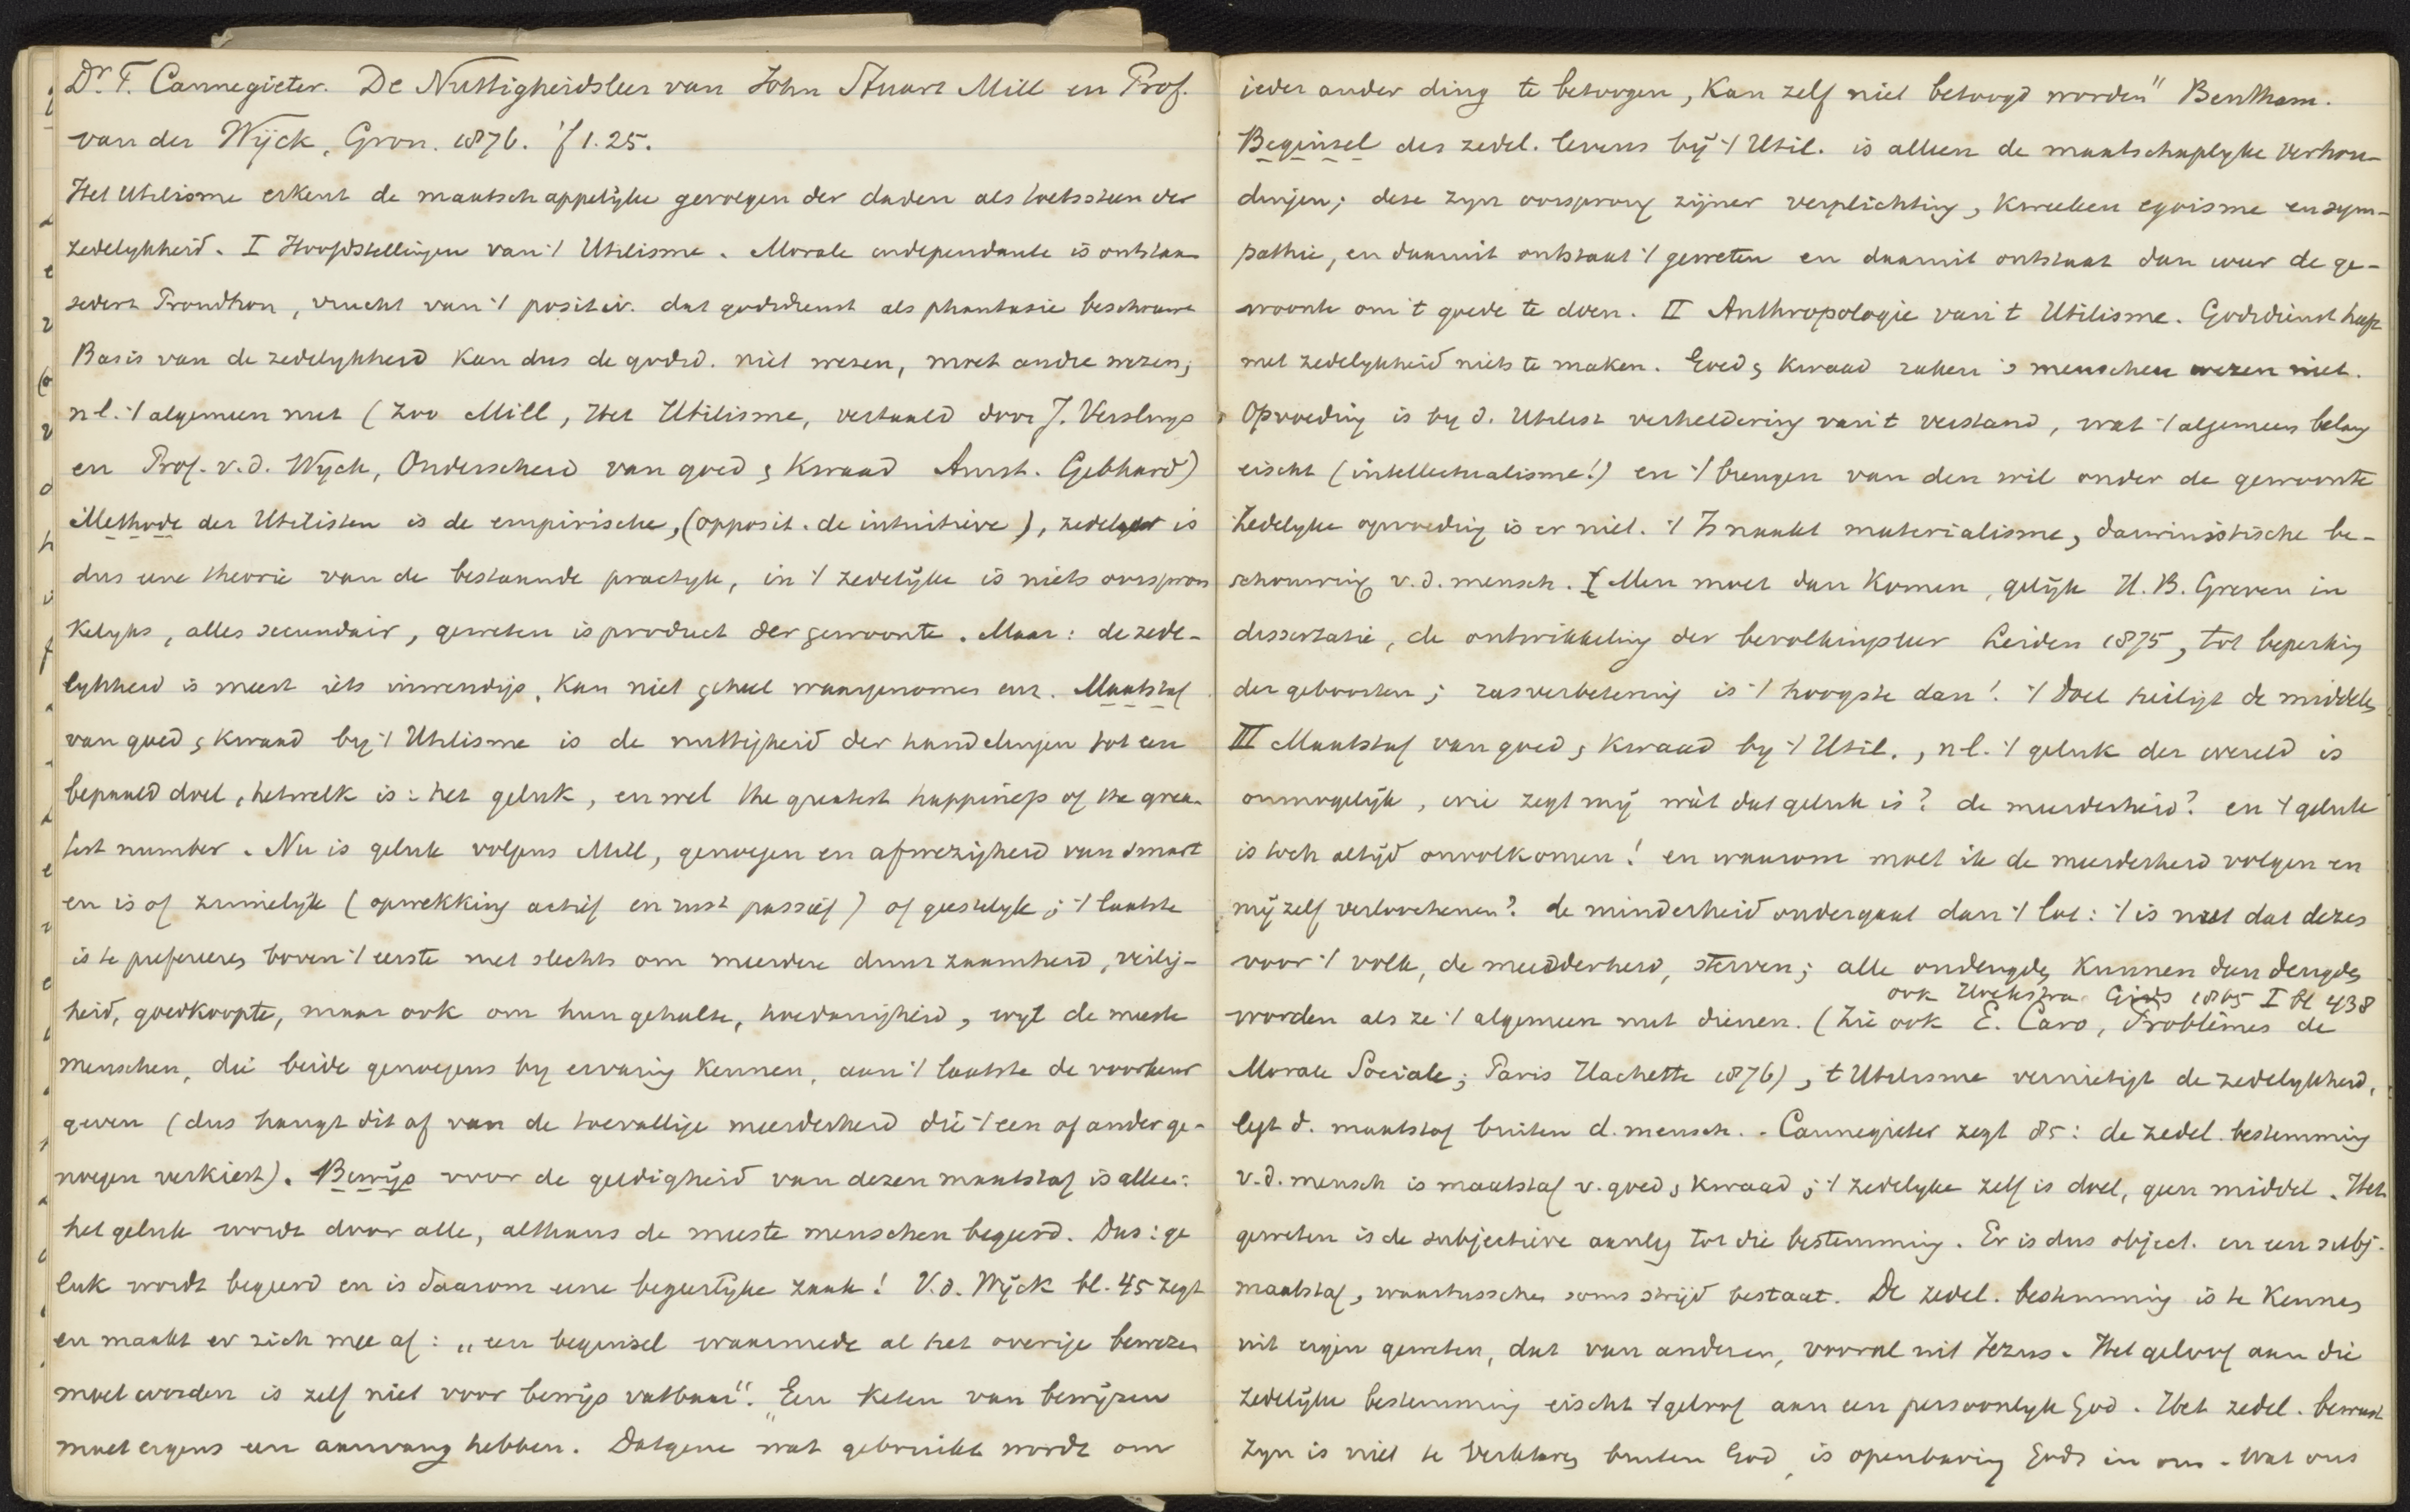 Dr. T. Cannegieter. De Nuttigheidsleer van John Stuart Mill en Prof.
van der Wijck, Gron. 1876. f 1.25.
Het Utilisme erkent de maatschappelijke gevolgen der daden als toetssteen der
zedelykheid. I Hoofdstellingen van 't Utilisme. Morale independante is ontstaan
sedert Proudhon, vrucht van 't positiv. dat godsdienst als phantasie beschouwt
Basis van de zedelykheid kan dus de godsd. niet wezen, moet andre wezen;
nl. 't algemeen nut (zoo Mill, Het Utilisme, vertaald door J. Versluys
en Prof. v.d. Wyck, Onderscheid van goed & kwaad Amst. Gebhard)
Methode der Utilisten is de empirische, (opposit. de intuitieve), zedeleer is
dus eene theorie van de bestaande practyk, in 't zedelijke is niets oorspron
kelyks, alles secundair, geweten is product der gewoonte. Maar: de zede-
lykheid is meest iets inwendigs, kan niet geheel waargenomen enz. Maatstaf
van goed & kwaad by 't Utilisme is de nuttigheid der handelingen tot een
bepaald doel, hetwelk is: het geluk, en wel the greatest happiness of the grea-
test number. Nu is geluk volgens Mill, genoegen en afwezigheid van smart
en is of zinnelijk (opwekking actief en rust passief) of geestelyk; 't laatste
is te prefereeren boven 't eerste niet slechts om meerdere duurzaamheid, veilig-
heid, goedkoopte, maar ook om hun gehalte, hoedanigheid, wyl de meeste
menschen, die beide genoegens by ervaring kennen, aan 't laatste de voorkeur
geven (dus hangt dit af van de toevallige meerderheid die 't een of ander ge-
noegen verkiest). Bewijs voor de geldigheid van dezen maatstaf is alleen:
het geluk wordt door alle, althans de meeste menschen begeerd. Dus: ge
luk wordt begeerd en is daarom eene begeerlijke zaak! V.d. Wijck bl. 45 zegt
en maakt er zich mee af: „een beginsel waarmede al het overige bewezen
moet worden is zelf niet voor bewijs vatbaar". „Een keten van bewijzen
moet ergens een aanvang hebben. Datgene wat gebruikt wordt om
ieder ander ding te betoogen, kan zelf niet betoogd worden" Bentham.
Beginsel des zedel. levens bij 't Util. is alleen de maatschaplyke verhou-
dingen; deze zyn oorsprong zijner verplichting, kweeken egoisme en sym-
pathie, en daaruit ontstaat 't geweten en daaruit ontstaat dan weer de ge-
woonte om 't goede te doen. II Anthropologie van 't Utilisme. Godsdienst heeft
met zedelykheid niets te maken. Goed & kwaad raken 's menschen wezen niet.
Opvoeding is by d. Utilist verheldering van 't verstand, wat 't algemeen belang
eischt (intellectualisme!) en 't brengen van den wil onder de gewoonte
Zedelyke opvoeding is er niet. 't Is naakt materialisme, darwinistische be-
schouwing v.d. mensch. [Men moet dan komen, gelijk H.B. Greven in
dissertatie, de ontwikkeling der bevolkingsleer Leiden 1875, tot beperking
der geboorten; rasverbetering is 't hoogste dan! 't Doel heiligt de middelen
III Maatstaf van goed & kwaad by 't Util., nl. 't geluk der wereld is
onmogelijk, wie zegt mij wàt dat geluk is? de meerderheid? en 't geluk
is toch altijd onvolkomen! en waarom moet ik de meerderheid volgen en
mij zelf verloochenen? de minderheid ondergaat dan 't lot: 't is nut dat dezes
voor 't volk, de meerderheid, sterven; alle ondeugden kunnen dan deugden
ook Hoekstra Gids 1865 I bl 438
worden als ze 't algemeen nut dienen. (Zie ook E. Caro, Problèmes de
Morale Sociale; Paris Hachette 1876), 't Utilisme vernietigt de zedelykheid,
legt d. maatstaf buiten d. mensch. - Cannegieter zegt 85: de zedel. bestemming
v.d. mensch is maatstaf v. goed & kwaad; 't zedelyke zelf is doel, geen middel. Het
geweten is de subjectieve aanleg tot die bestemming. Er is dus object. en een subj.
maatstaf, waartusschen soms strijd bestaat. De zedel. bestemming is te kennen
uit eigen geweten, dat van anderen, vooral uit Jezus. Het geloof aan die
zedelijke bestemming eischt 't geloof aan een persoonlyk God. Het zedel. bewust
zyn is niet te verklaren buiten God, is openbaring Gods in ons. Wat ons